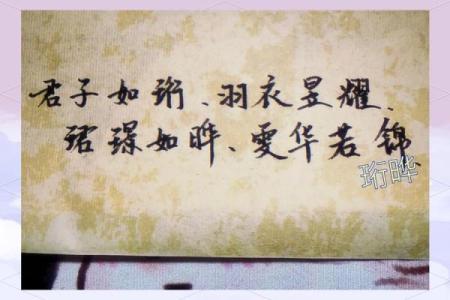 君子如珩、羽衣昱耀、
珺璟如晔、雯华若锦、
珩晔